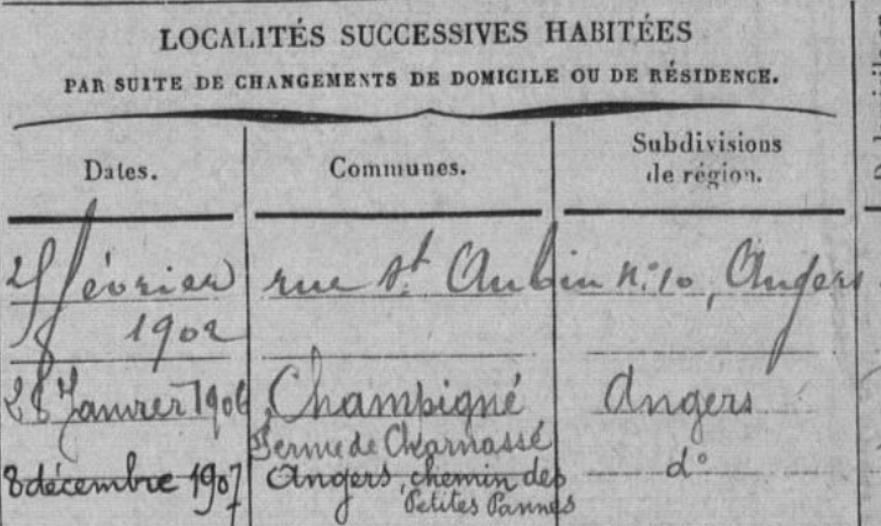 LOCALITÉS SUCCESSIVES HABITÉES
PAR SUITE DE CHANGEMENTS DE DOMICILE OU DE RÉSIDENCE.
Dates. Communes. Subdivisions
de région.
février rue St. Aubin n.° 10, Angers
1902
28 Janvier 1906 Champigné Angers
Ferme de Charnassé
8 décembre 1907 Angers, chemin des d°
Petites Pannes